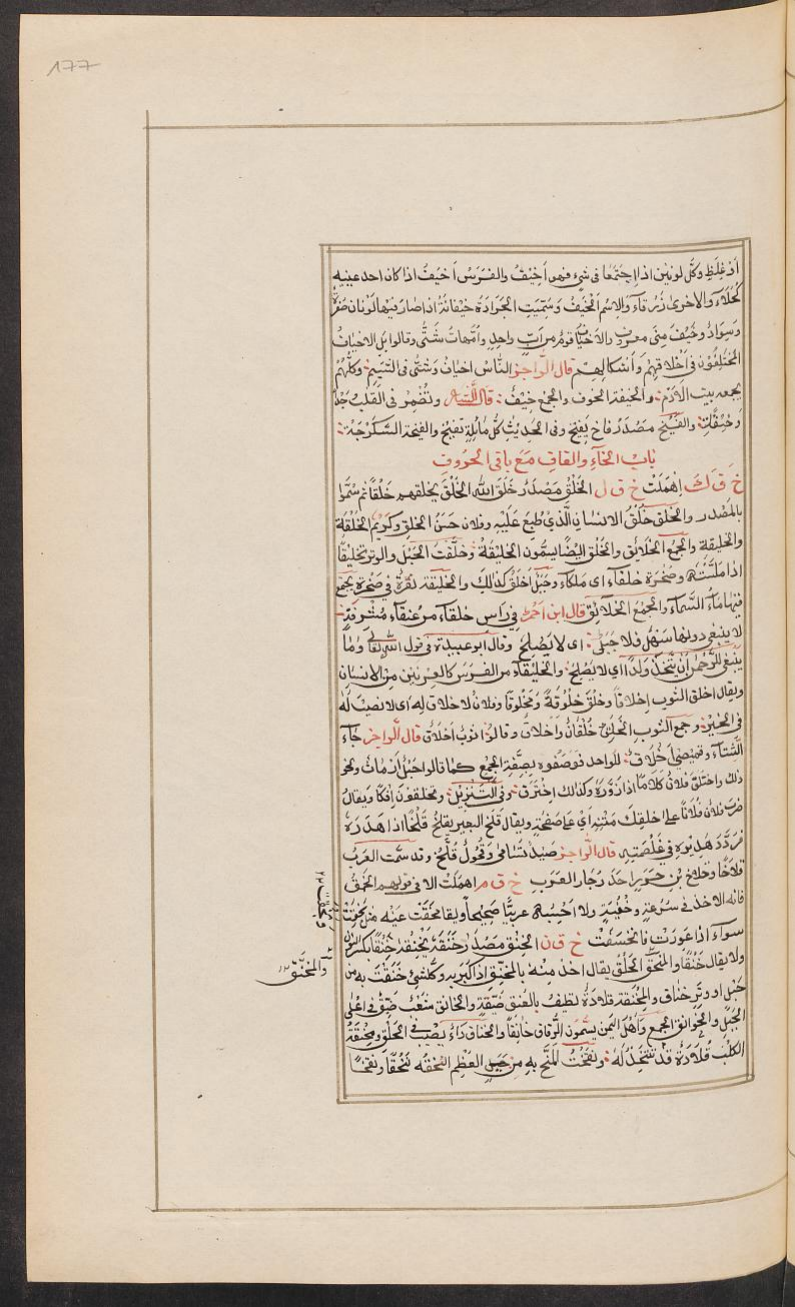 177
او غلظ وكل لونين اذا اجتمعا فى شئ فهو اخيف والفرس اخيف اذا كان احد عينيه
كحلاء والاخرى زرقاء والاسم الخيف وسميت الجرادة خيفانة اذا صار فيها لونان صفرة
وسواد وخيف منى معروف والاخياف قوم من اب واحد وامهات شتى وقالوا بل الاخياف
المختلفون فى اخلاقهم واشكالهم قال الراجز الناس اخياف وشتى فى الشيم وكلهم
يجمعه بيت الادم والخيفة الخوف والجمع خيف قال الشاعر وتضمر فى القلب وجدا
وخيفا والفيخ مصدر فاخ يفيخ وفى الحديث كل مائلة تفيخ والفيخة السكرجة
باب الخاء والقاف مع باقى الحروف
خ ق ك اهملت خ ق ل الخلق مصدر خلق الله الخلق يخلقهم خلقا ثم سموا
بالمصدر والخلق خلق الانسان الذى طبع عليه وفلان حسن الخلق وكريم الخلقة
والخليقة والجمع الخلائق والخلق ايضا يسمون الخليقة وخلقت الحبل والوتر تخليقا
اذا ملسته وصخرة خلقاء اى ملساء وجبل اخلق كذلك والخليقة نقرة فى صخرة يجمع
فيها ماء السماء والجمع الخلائق قال ابن احمر فى راس خلقاء من عنقاء مشرفة
لا ينبغى دونها سهل ولا جبل اى لا يصلح وقال ابو عبيدة فى قول الله تعالى وما
ينبغى للرحمن ان يتخذ ولدا اى لا يصلح والخليقاء من الفرس كالعرنين من الانسان
ويقال اخلق الثوب اخلاقا وخلق خلوقة وخلوقا وفلان لا خلاق له اى لا نصيب له
فى الخير وجمع الثوب الخلق خلقان واخلاق وقالوا ثوب اخلاق قال الراجز جاء
الشتاء وقميصى اخلاق للواحد فوصفوه بصفة الجمع كما قالوا حبل ارمام ونحو
ذلك واختلق فلان كلاما اذا زوره وكذلك اخترق وفى التنزيل وتخلقون افكا ويقال
ضرب فلان فلانا على اخلقك متنه اى على صفحته ويقال قلخ البعير يقلخ قلخا اذا هدر
فردد هديره فى غلصمته قال الراجز صيد تسامى وقحول قلخ وقد سمت العرب
قلاخا وقلاخ بن حزن احد رجاز العرب خ ق م اهملت الا فى قولهم الخمق
فانه الاخذ فى سرعة وخفية ولا احسبه عربيا صحيحا ويقال مخقت عينه مثل بخقت
سواء اذا عورت فانخسفت خ ق ن الخنق مصدر خنقه يخنقه خنقا بكسر النون
ولا يقال خنقا والمخنق الحلق يقال اخذ منه بالمخنق اذا كربه وكلشئ خنقت به من
حبل او وتر خناق والمخنقة قلادة تطيف بالعنق ضيقة والخانق شعب ضيق فى اعلى
الجبل والخوانق الجمع واهل اليمن يسمون الزقاق خانقا والخناق داء يصيب فى الحلق ومخنقة
الكلب قلادة قد تتخذ له ونقخت المخ به من العظم انقخه نقخا ونقخا
وبخقت
والمخنق